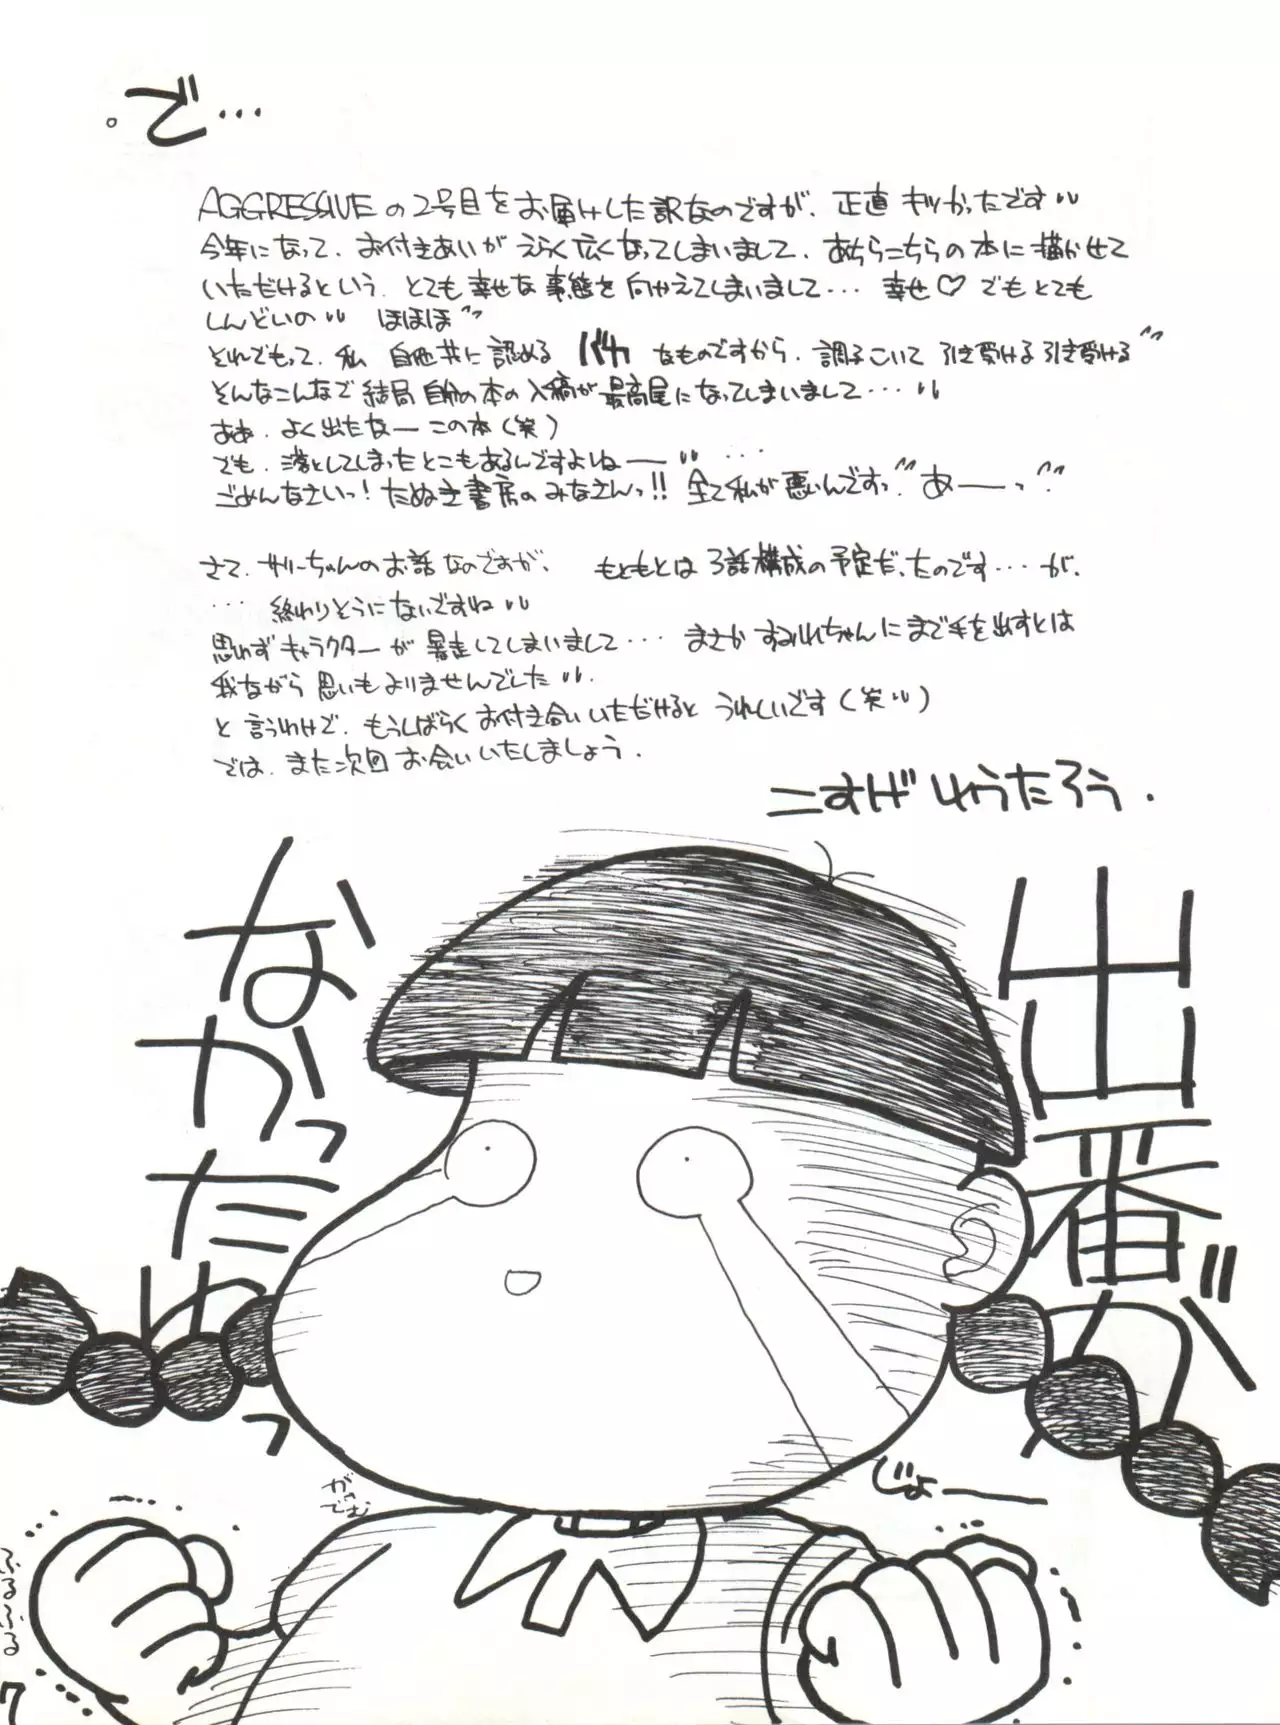 。で…
AGGRESSIVEの2号目をお届けした訳なのですが、正直 キツかったです〃
今年になって、お付きあいが えらく広くなってしまいまして、あちらこちらの本に描かせて
いただけるという、とても幸せな事態を向かえてしまいまして… 幸せ♡でもとても
しんどいの〃 ほほほ〃
それでもって、私 自他共に認める バカ なものですから、調子こいて 引き受ける引き受ける〃
そんなこんなで結局 自分の本の入稿が最高尾になってしまいまして…〃
ああ、よく出たなーこの本(笑)
でも、落としてしまったとこもあるんですよねー〃…
ごめんなさいっ!たぬき書房のみなさんっ!! 全て私が悪いんですっ〃あーーっ〃
さて、サリーちゃんのお話なのですが、 もともとは3話構成の予定だったのです…が、
… 終わりそうにないですね〃
思わずキャラクターが暴走してしまいまして… まさか すみれちゃんにまで手を出すとは
我ながら思いもよりませんでした〃
と言うわけで、もうしばらくお付き合いいただけると うれしいです(笑〃)
では、また次回お会いいたしましょう。
こすげ しょうたろう.
出番が
なかったわっ
がーでむ
じょー
ふるふる
7